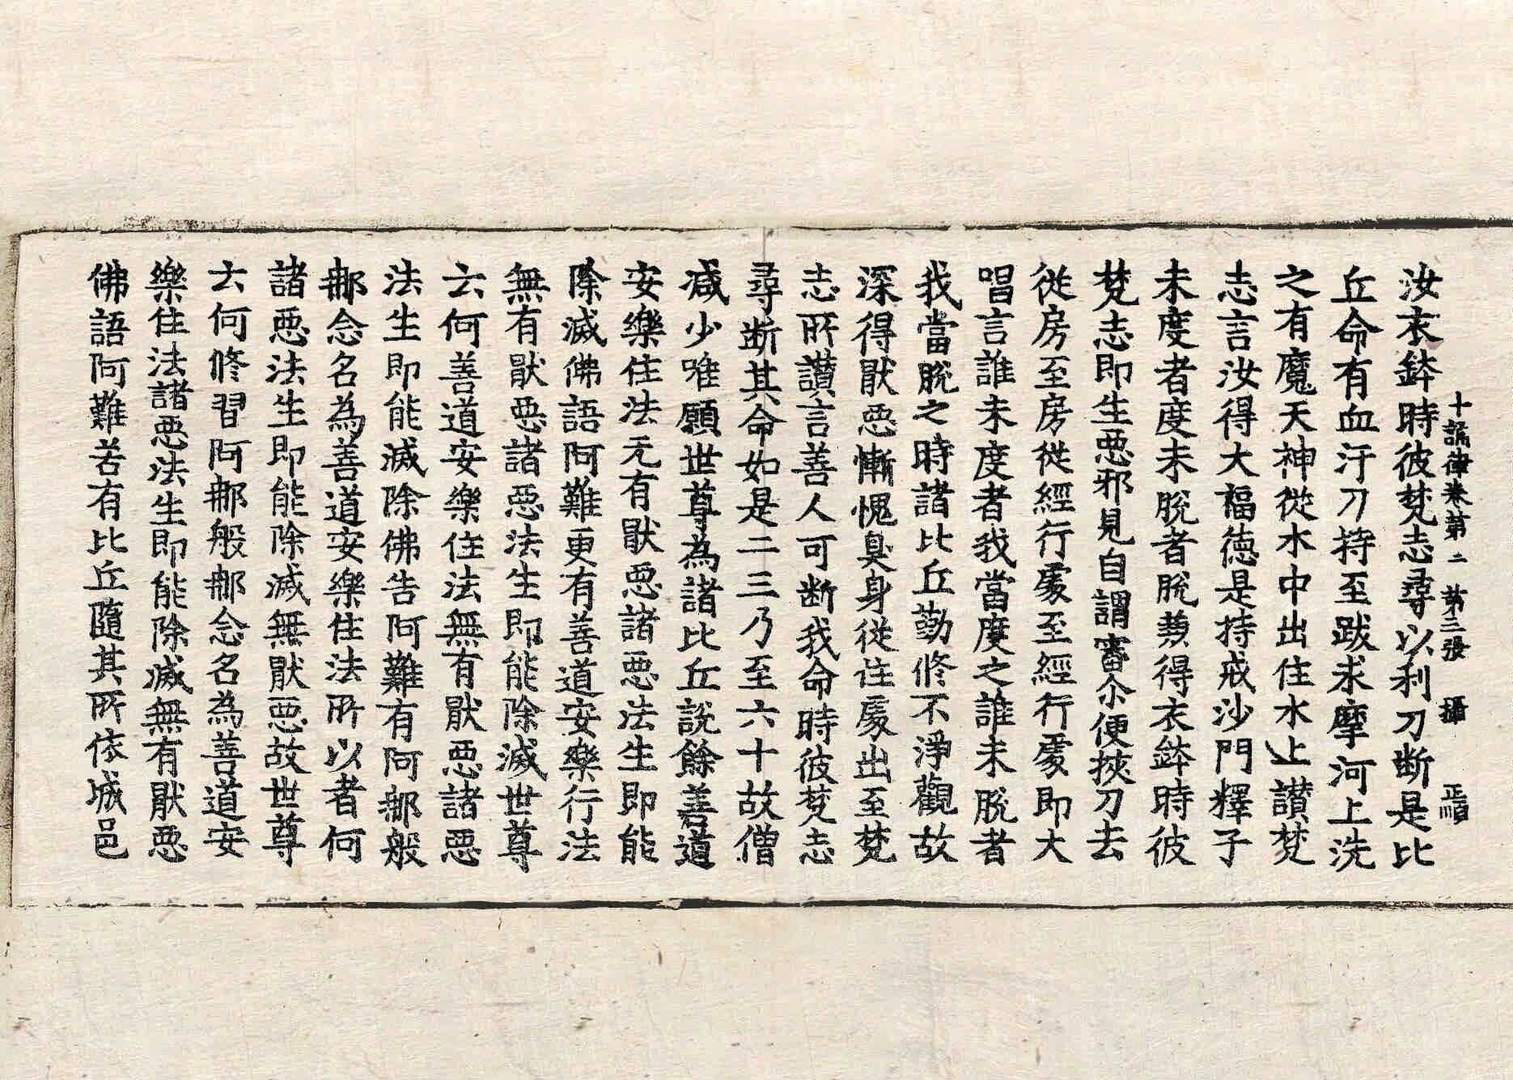 十誦律卷第二 第三張 攝 正順
汝衣鉢時彼梵志尋以利刀断是比
丘命有血汙刀持至跋求摩河上洗
之有魔天神從水中出住水上讃梵
志言汝得大福德是持戒沙門釋子
未度者度未脫者脫兼得衣鉢時彼
梵志即生惡邪見自謂審尒便挾刀去
從房至房從經行處至經行處即大
唱言誰未度者我當度之誰未脫者
我當脫之時諸比丘勤修不淨觀故
深得猒惡慚愧臭身從住處出至梵
志所讃言善人可断我命時彼梵志
尋断其命如是二三乃至六十故僧
减少唯願世尊為諸比丘說餘善道
安樂住法无有猒惡諸惡法生即能
除滅佛語阿難更有善道安樂行法
無有猒惡諸惡法生即能除滅世尊
云何善道安樂住法無有猒惡諸惡
法生即能滅除佛告阿難有阿那般
那念名為善道安樂住法所以者何
諸惡法生即能除滅無猒惡故世尊
云何修習阿那般那念名為善道安
樂住法諸惡法生即能除滅無有猒惡
佛語阿難若有比丘隨其所依城邑